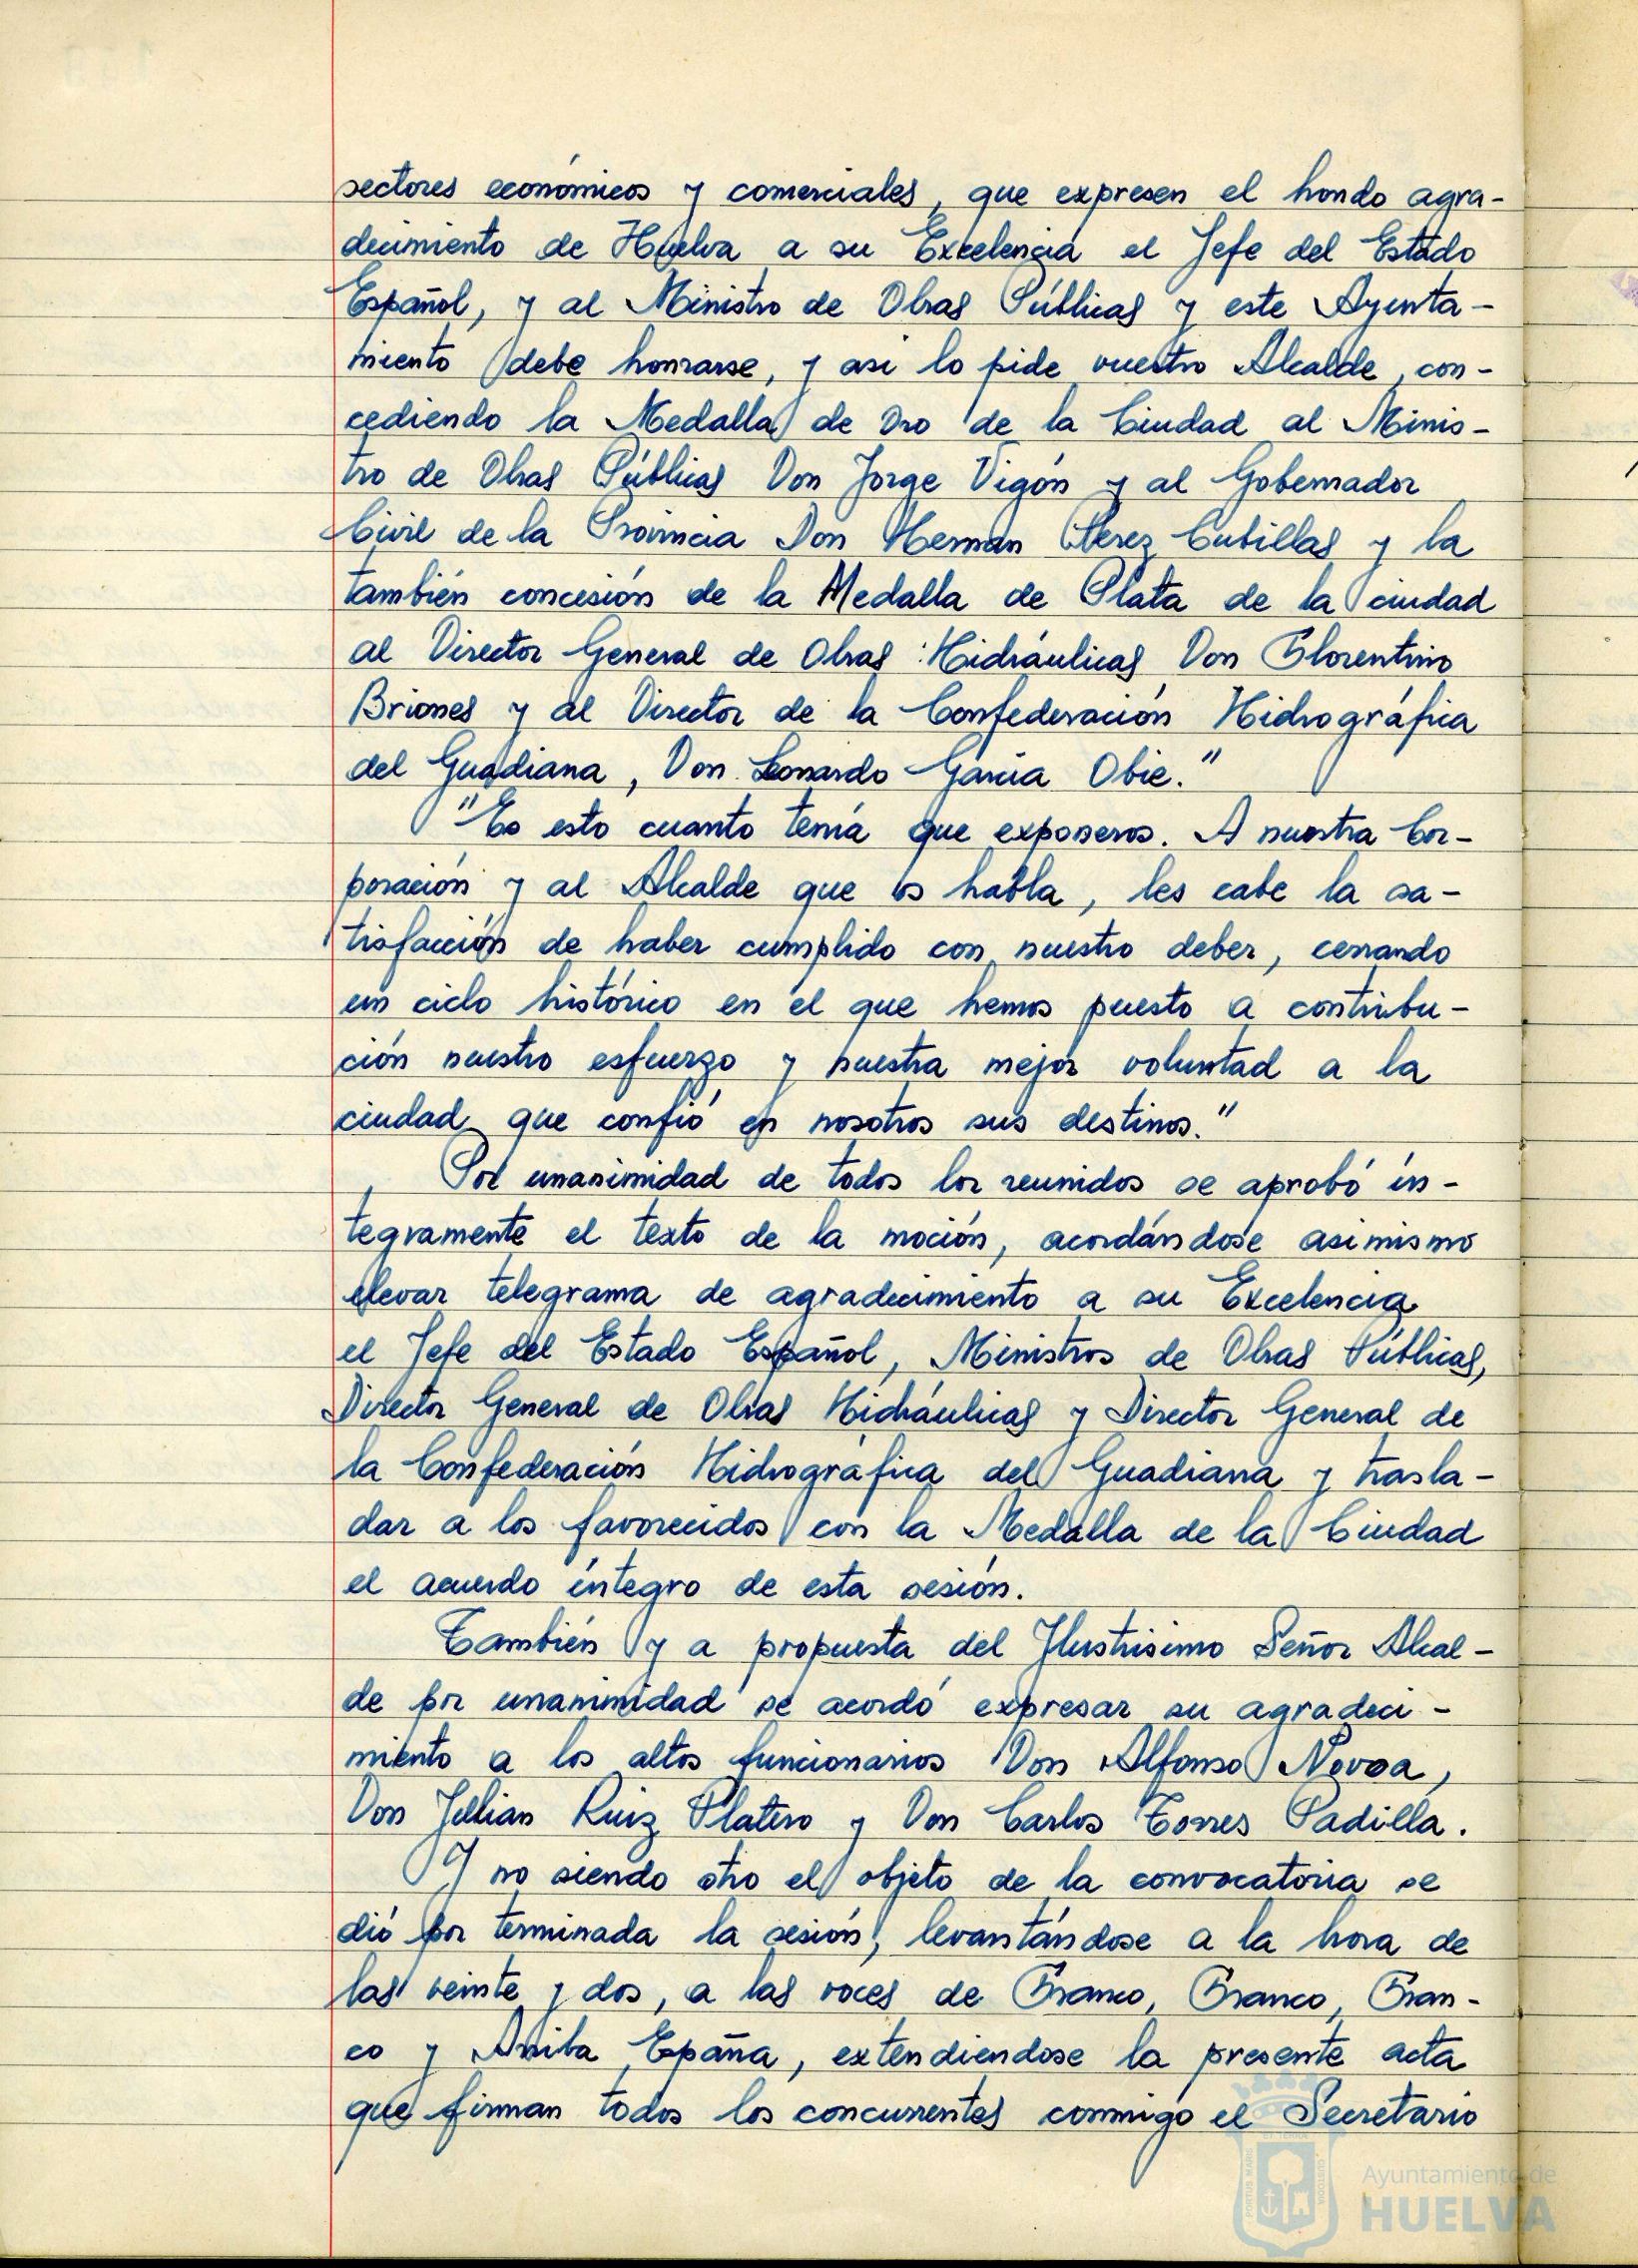 sectores económicos y comerciales, que expresen el hondo agra-
decimiento de Huelva a su Excelencia el Jefe del Estado
Español, y al Ministro de Obras Públicas y este Ayunta-
miento debe honrarse, y asi lo pide vuestro Alcalde, con-
cediendo la Medalla de Oro de la Ciudad al Minis-
tro de Obras Públicas Don Jorge Vigón y al Gobernador
Civil de la Provincia Don Hernan Perez Cubillas y la
también concesión de la Medalla de Plata de la ciudad
al Director General de Obras Hidráulicas Don Florentino
Briones y al Director de la Confederación Hidrográfica
del Guadiana, Don Leonardo García Obie."
"Es esto cuanto tenía que exponeros. A nuestra Cor-
poración y al Alcalde que os habla, les cabe la sa-
tisfacción de haber cumplido con nuestro deber, cerrando
un ciclo histórico en el que hemos puesto a contribu-
ción nuestro esfuerzo y nuestra mejor voluntad a la
ciudad que confió en nosotros sus destinos."
Por unanimidad de todos los reunidos se aprobó ín-
tegramente el texto de la moción, acordándose asimismo
elevar telegrama de agradecimiento a su Excelencia
el Jefe del Estado Español, Ministros de Obras Públicas,
Director General de Obras Hidráulicas y Director General de
la Confederación Hidrográfica del Guadiana y trasla-
dar a los favorecidos con la Medalla de la Ciudad
el acuerdo íntegro de esta sesión.
También y a propuesta del Ilustrisimo Señor Alcal-
de por unanimidad se acordó expresar su agradeci-
miento a los altos funcionarios Don Alfonso Novoa,
Don Julian Ruiz Platero y Don Carlos Torres Padilla.
Y no siendo otro el objeto de la convocatoria se
dió por terminada la sesión, levantándose a la hora de
las veinte y dos, a las voces de Franco, Franco, Fran-
co y Arriba España, extendiendose la presente acta
que firman todos los concurrentes conmigo el Secretario
Ayuntamiento de
HUELVA